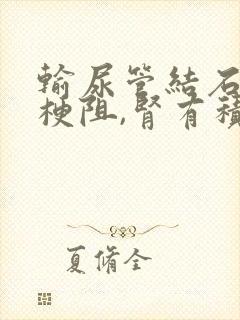 輸尿管結石
梗阻,腎有積
夏脩全